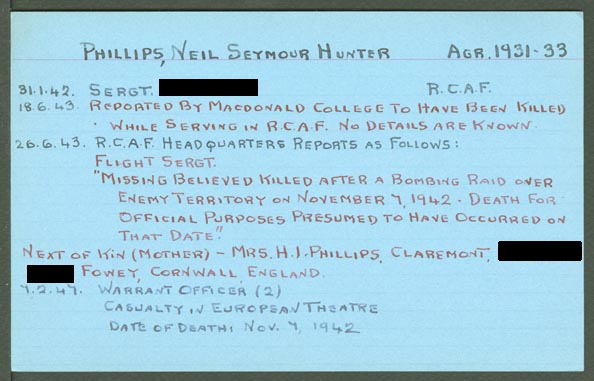 PHILLIPS, NEIL SEYMOUR HUNTER AGR. 1931-33
31.1.42. SERGT. R.C.A.F.
18.6.43. REPORTED BY MACDONALD COLLEGE TO HAVE BEEN KILLED
WHILE SERVING IN R.C.A.F. NO DETAILS ARE KNOWN.
26.6.43. R.C.A.F. HEADQUARTERS REPORTS AS FOLLOWS:
FLIGHT SERGT.
"MISSING BELIEVED KILLED AFTER A BOMBING RAID OVER
ENEMY TERRITORY ON NOVEMBER 7, 1942. DEATH FOR
OFFICIAL PURPOSES PRESUMED TO HAVE OCCURRED ON
THAT DATE."
NEXT OF KIN (MOTHER) - MRS. H.J. PHILLIPS, CLAREMONT,
FOWEY, CORNWALL, ENGLAND.
7.2.47. WARRANT OFFICER (2)
CASUALTY IN EUROPEAN THEATRE
DATE OF DEATH: NOV. 7, 1942